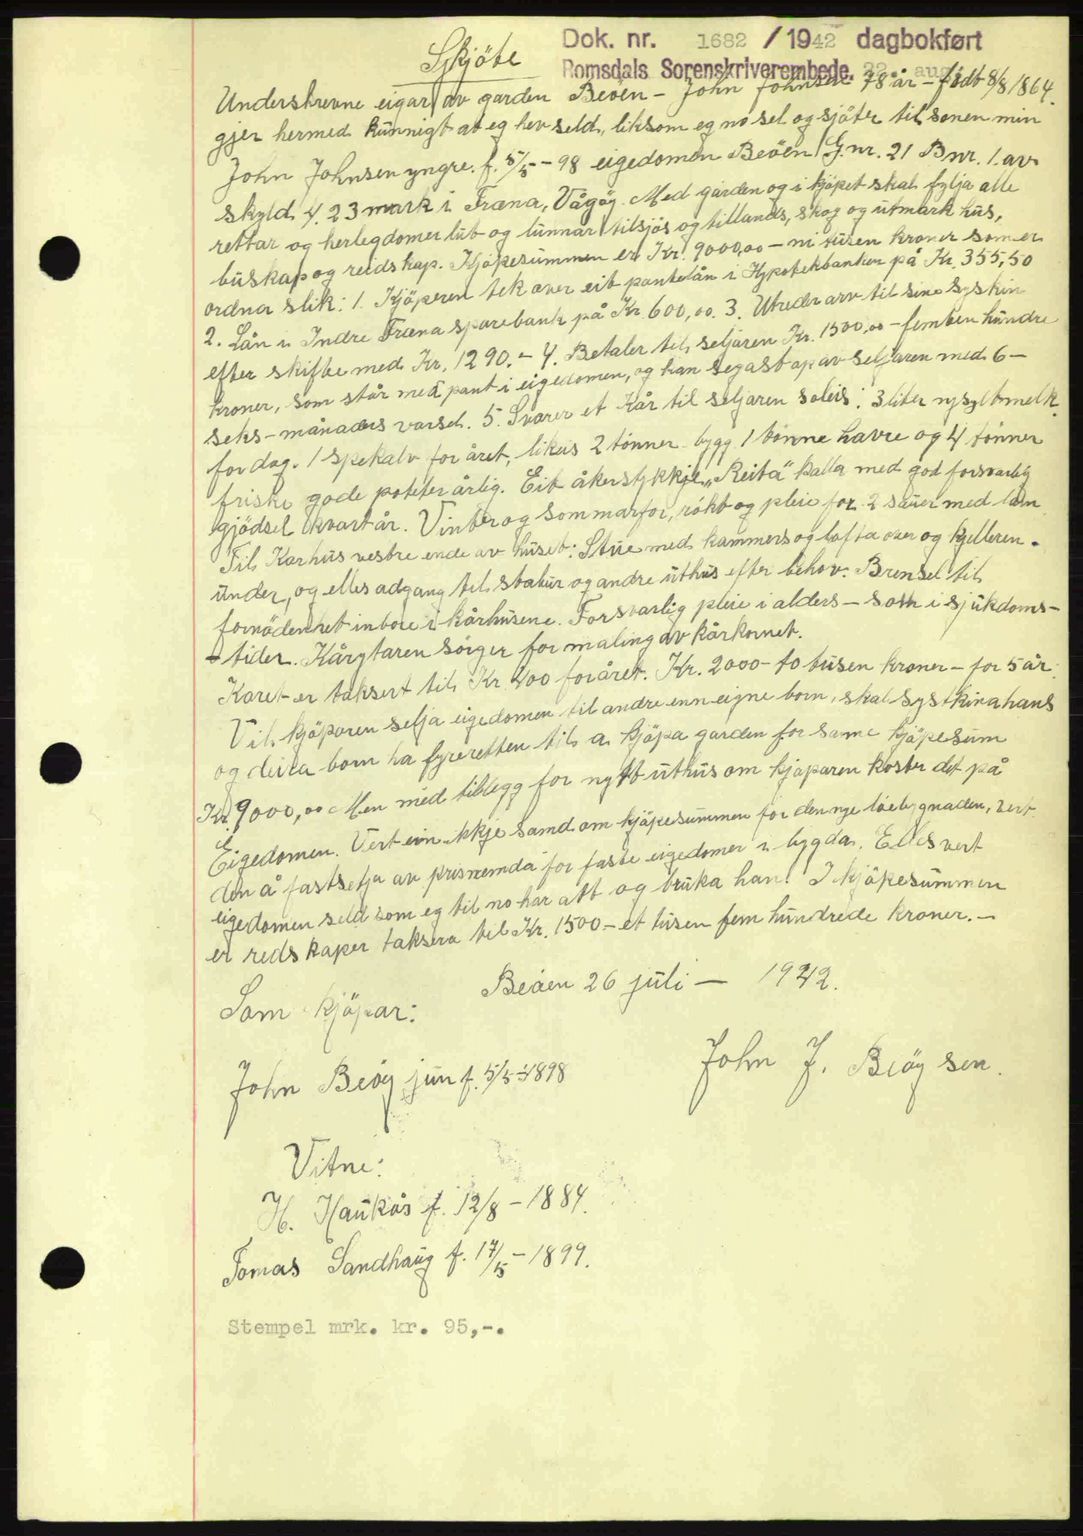 Dok. nr. 1682 / 1942 dagbokført
Romsdals Sorenskriverembede, 22. aug.
Skjöte
Underskrevne eigar av garden Beöen - John Johnsen 78 år - född 8/8 1864.
gjer hermed kunnigt at eg hev seld, liksom eg no sel og sjöter til sonen min
John Johnsen yngre. f. 5/5 - 98 eigedomen Beöen G.nr. 21 B.nr. 1. av
skyld 4.23 mark i Fræna, Vågöy. Med garden og i kjöpet skal fylja alle
rettar og herlegdomer lut og lunnar tilsjös og tillands, skog og utmark hus,
buskap og reidskap. Kjöpesummen er Kr. 9000,00 - ni tusen kroner som er
ordna slik: 1. Kjöperen tek over eit pantelån i Hypotekbanken på Kr. 355,50
2. Lån i Indre Fræna sparebank på Kr 600,00. 3. Utreder arv til sine syskin
efter skifte med Kr. 1290.- 4. Betaler til seljaren Kr. 1500,00 - femten hundre
kroner, som står med pant i eigedomen, og han segast op av seljaren med 6 -
seks - månaders varsel. 5. Svarer et Kår til seljaren soleis: 3 liter nysyltmelk
for dag. 1 spekalv for året, likeis 2 tönner bygg 1 tönne havre og 4 tönner
friske gode poteter årlig. Eit åkerstykkje, „Reita" kalla med god forsvarlig
gjödsel kvart år. Vinter og sommarfor, rökt og pleie for 2 sauer med lam.
Til Karhus vestre ende av huset: Stue med kammers og lofta over og kjelleren.
under, og elles adgang til stabur og andre uthus efter behov. Brensel til
fornödenhet inbore i kårhusene. Forsvarlig pleie i alders - som i sjukdoms-
- tider. Kårytaren sörger for maling av kårkornet.
Karet er taksert til Kr. 400 for året. Kr. 2000 - to tusen kroner - for 5 år.
Vil kjöparen selja eigedomen til andre enn eigne born, skal syskina hans
og deira born ha fyreretten til a kjöpa garden for same kjöpesum
Kr. 9000,00 Men med tillegg for nytt uthus om kjöparen koster det på
Eigedomen. Vert ein ikkje samd om kjöpesummen for den nye löebygnaden, vert
den å fastsetja av prisnemda for faste eigedomer i bygda. Elles vert
eigedomen seld som eg til no har ått og bruka han. I kjöpesummen
er redskaper taksera til Kr. 1500 - et tusen fem hundrede kroner. -
Beöen 26 juli - 1942.
Som kjöpar:
John J. Beöy sen.
John Beöy jun f. 5/5 - 1898
Vitne:
H. Haukås f. 12/8 - 1884.
Tomas Sandhaug f. 17/5 - 1899.
Stempel mrk. kr. 95,-.